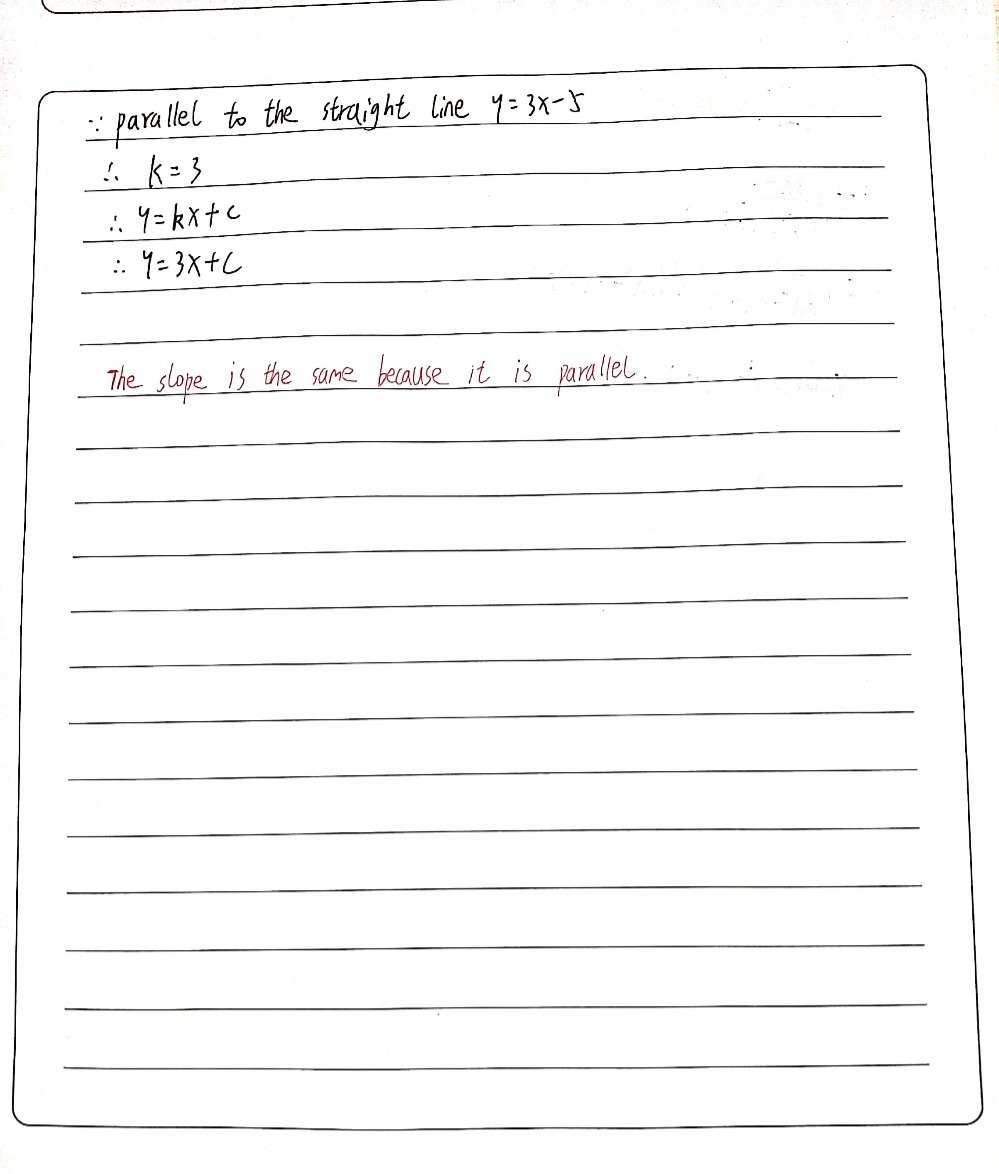 ∵ parallel to the straight line y=3x-5
∴ k=3
∴ y=kx+c
∴ y=3x+c
The slope is the same because it is parallel.